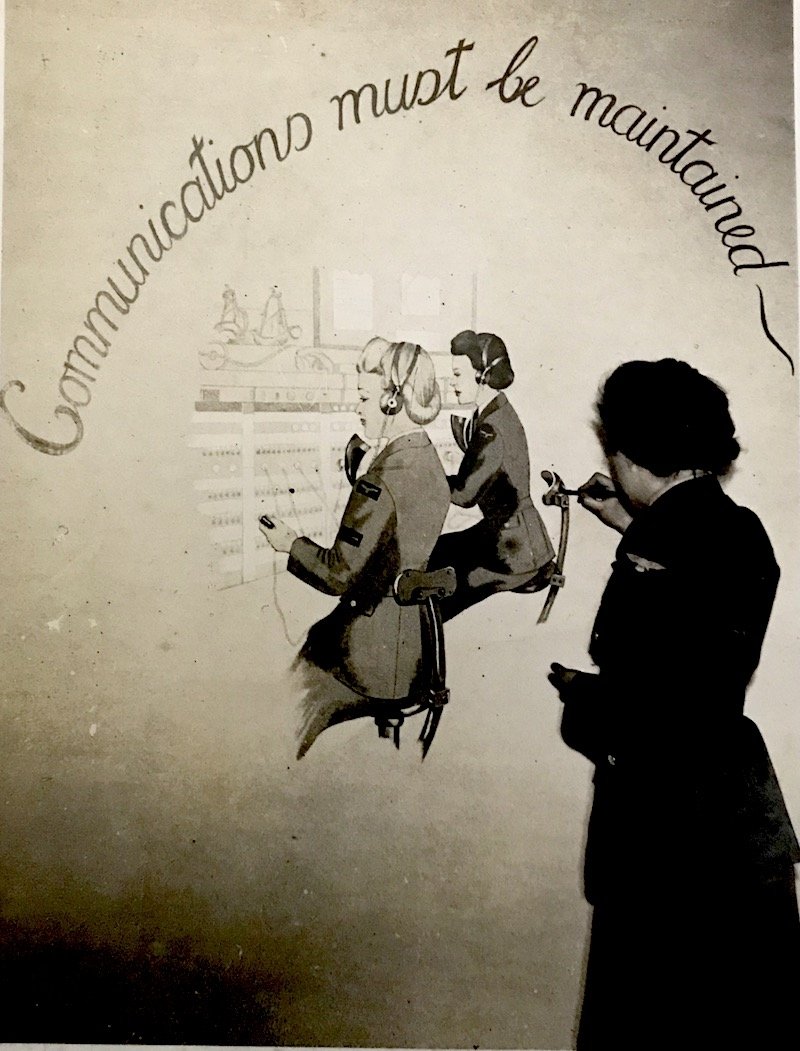 Communications must be maintained